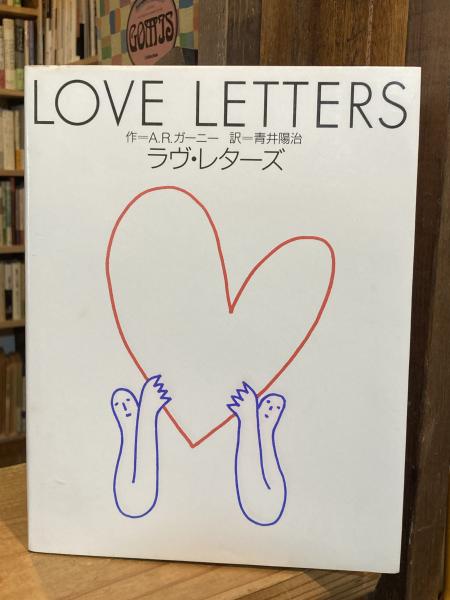 GOMES
LOVE LETTERS
作=A.R.ガーニー 訳=青井陽治
ラヴ・レターズ